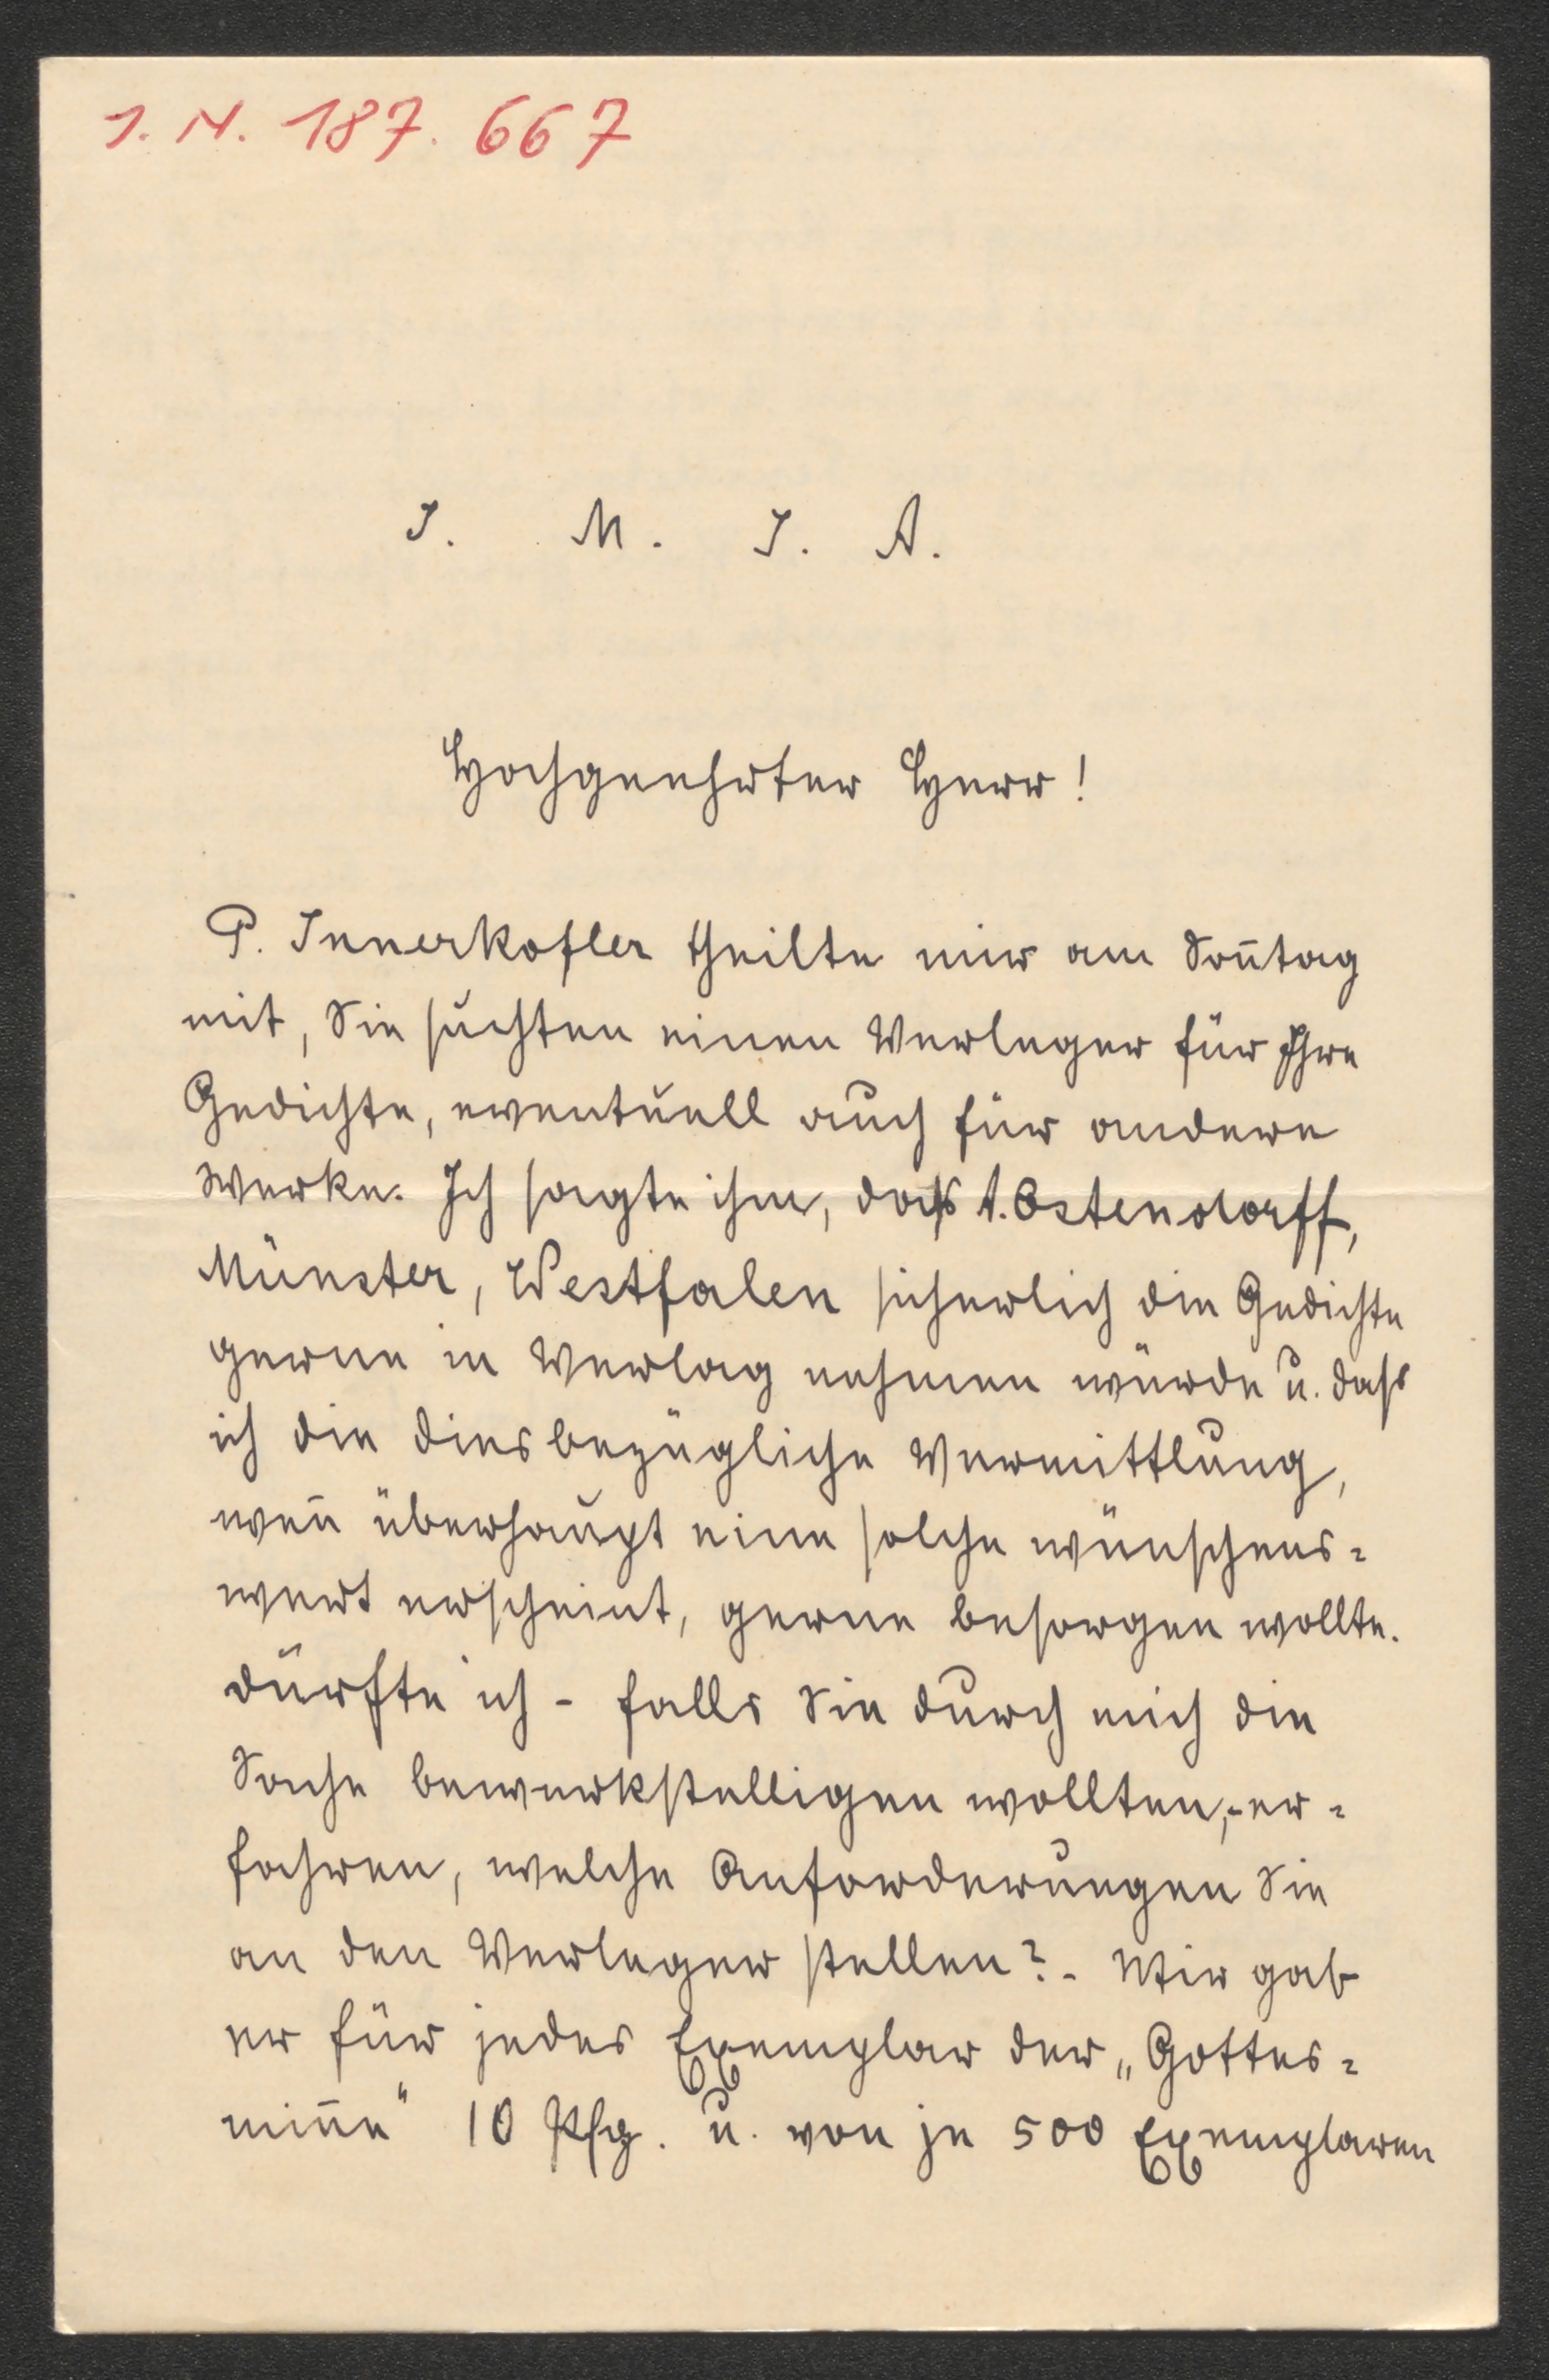 I. N. 187.667
J. M. J. A.
Hochgeehrter Herr!
P. Innerkofler theilte mir am Son̄tag
mit, Sie suchten einen Verleger für Ihre
Gedichte, eventuell auch für andere
Werke. Ich sagte ihm, dass A. Ostendorff,
Münster, Westfalen sicherlich die Gedichte
gerne in Verlag nehmen würde u. dass
ich die diesbezügliche Vermittlung,
wen̄ überhaupt eine solche wünschens=
wert erscheint, gerne besorgen wollte.
Dürfte ich - falls Sie durch mich die
Sache bewerkstelligen wollten,- er=
fahren, welche Anforderungen Sie
an den Verleger stellen? - Mir gab
er für jedes Exemplar der „Gottes=
min̄e“ 10 Pfg. u. von je 500 Exemplaren